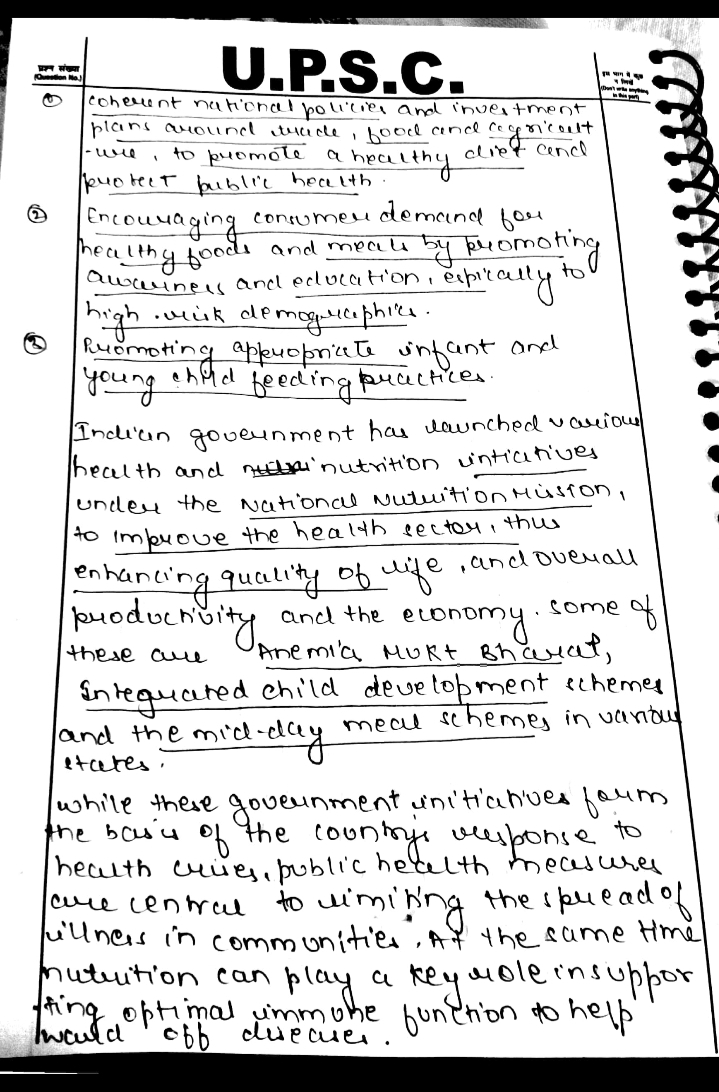 U.P.S.C.
प्रश्न संख्या
(Question No.)
इस भाग में कुछ
न लिखें
(Don't write anything
in this part)
① coherent national policies and investment
plans around trade, food and agricult
-ure, to promote a healthy diet and
protect public health.
② Encouraging consumer demand for
healthy foods and meals by promoting
awareness and education, espically to
high-risk demographics.
③ Promoting appropriate infant and
young child feeding practices.
Indian government has launched various
health and nutrition intiatives
under the National Nutrition Mission,
to improve the health sector, thus
enhancing quality of life, and overall
productivity and the economy. some of
these are Anemia Mukt Bharat,
Integrated child development schemes
and the mid-day meal schemes in various
states.
while these government initiatives form
the basis of the country's response to
health crises, public health measures
are central to limiting the spread of
illness in communities. At the same time
nutrition can play a key role in suppor
-ting optimal immune function to help
ward off diseases.